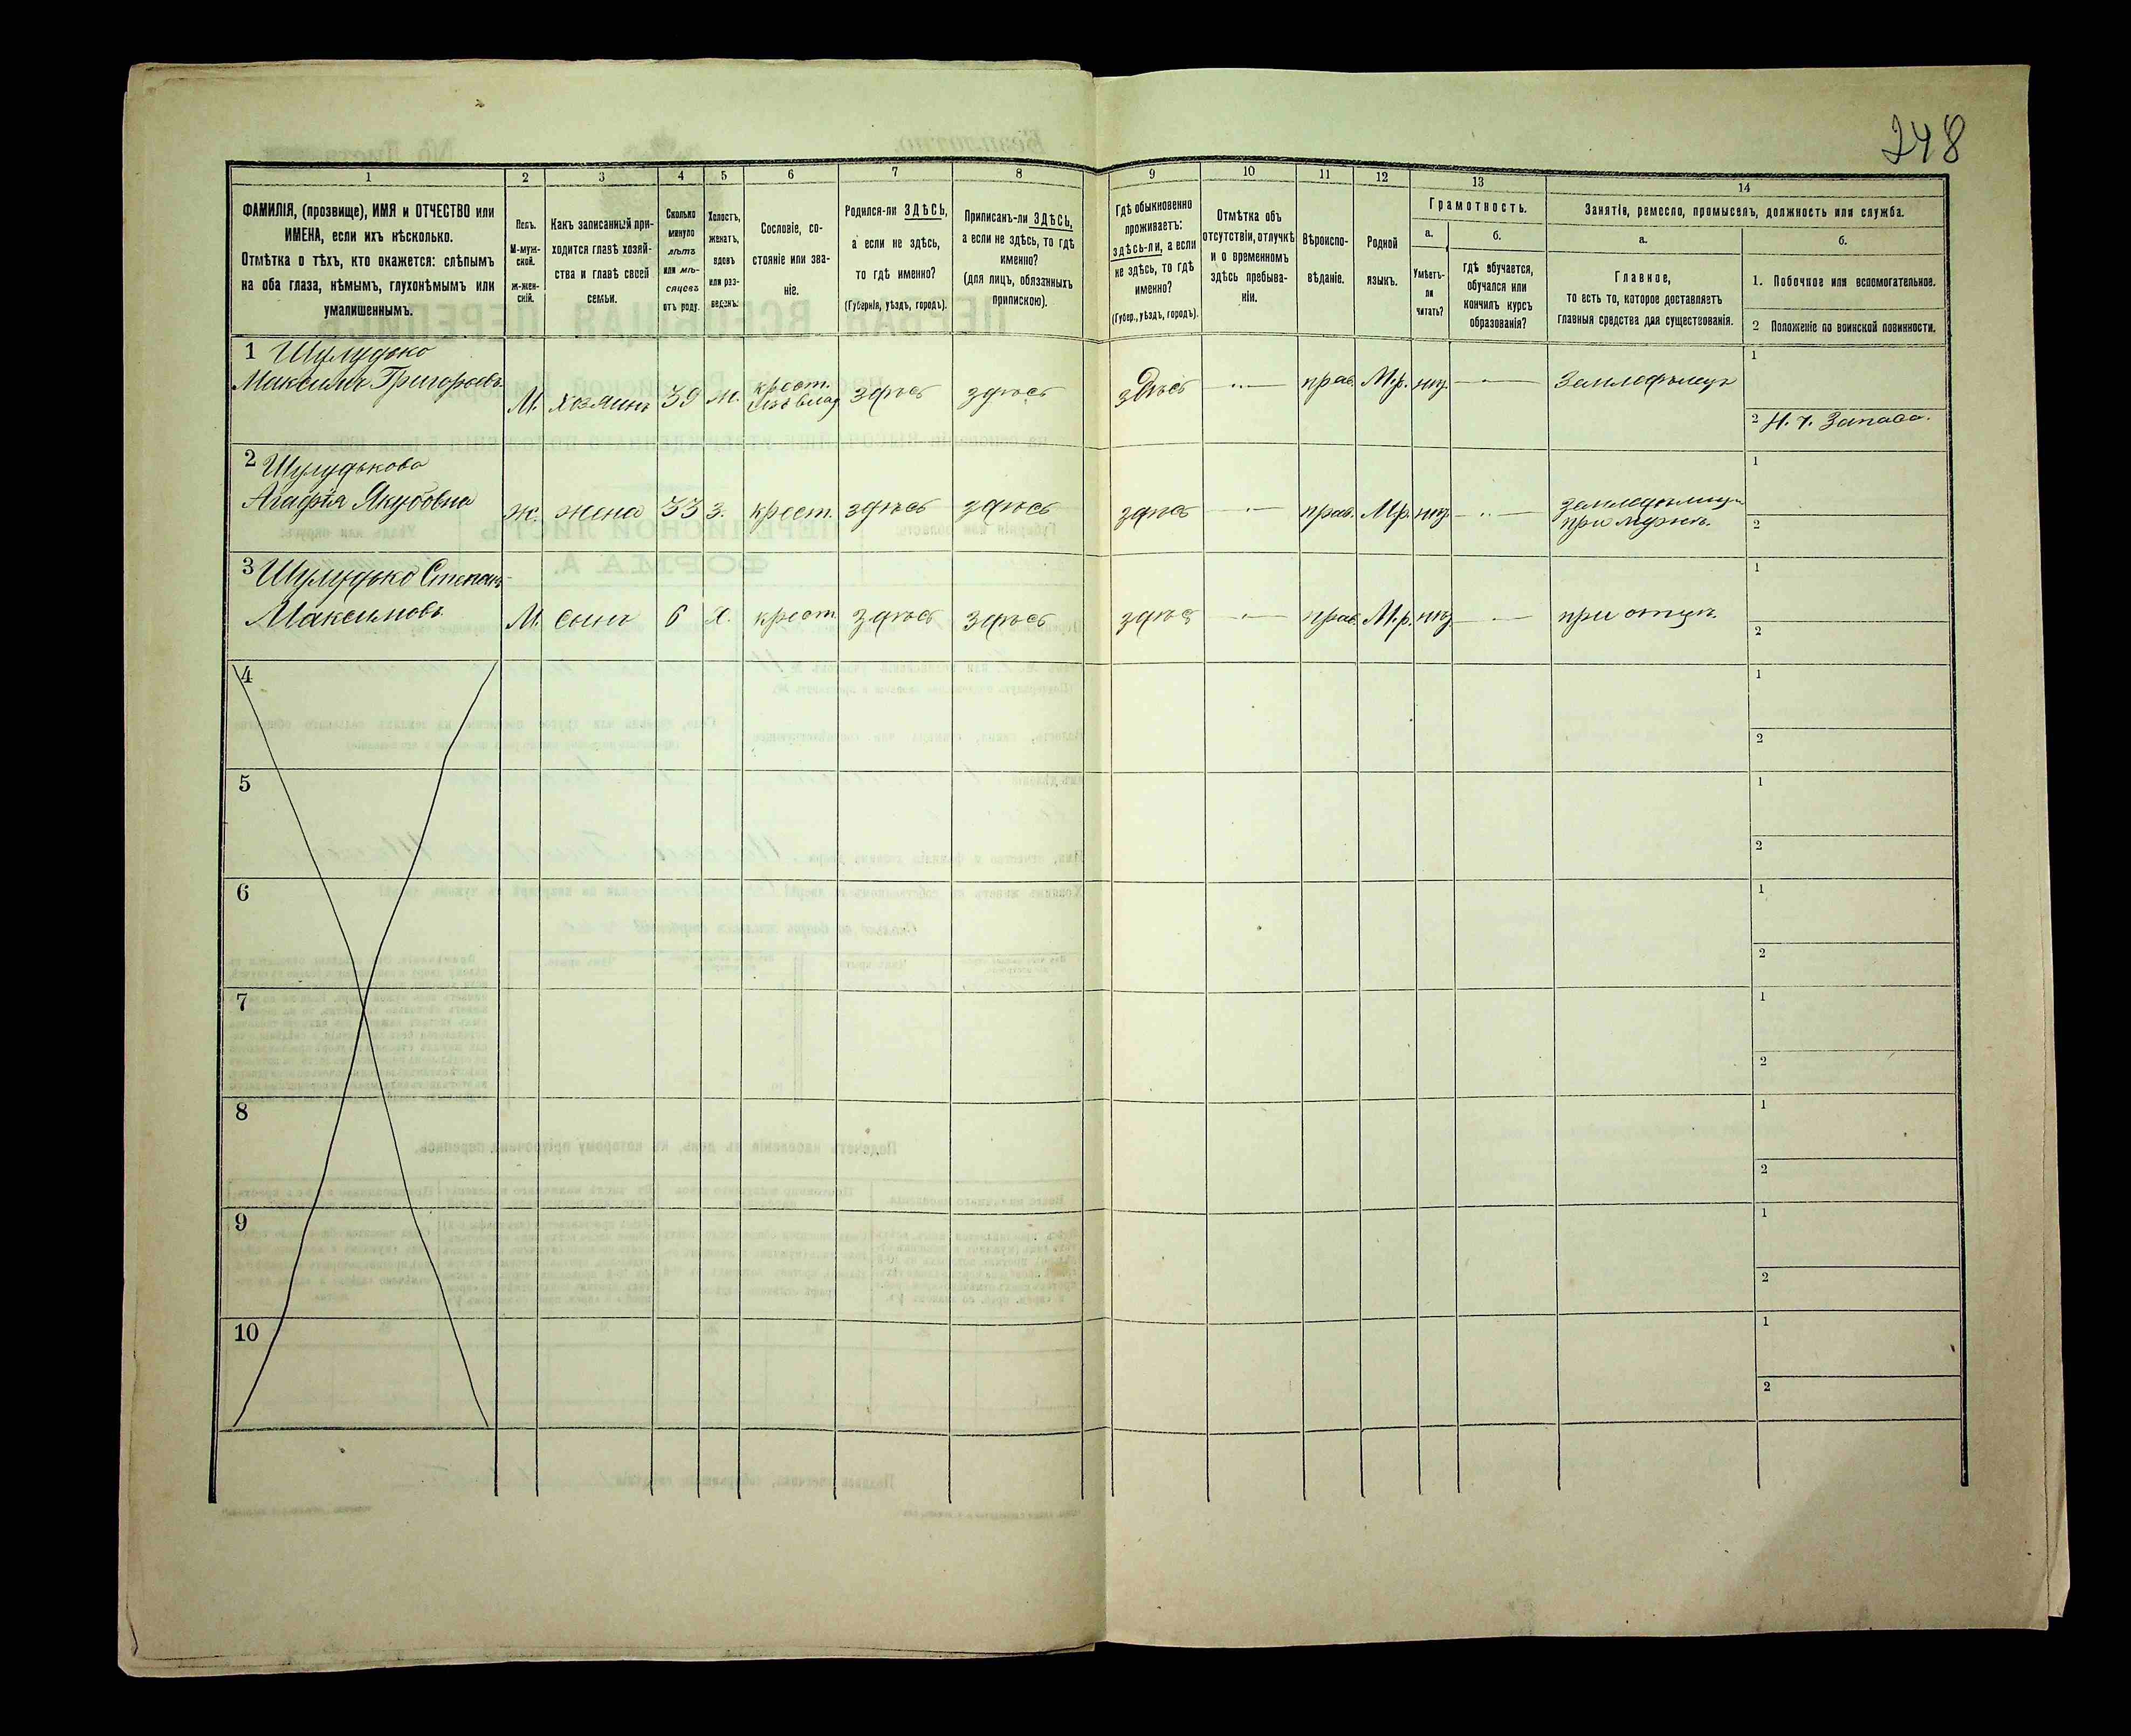 248
1
2
3
4
5
6
7
8
9
10
11
12
13
14
ФАМИЛІЯ, (прозвище), ИМЯ и ОТЧЕСТВО или
ИМЕНА, если ихъ нѣсколько.
Отмѣтка о тѣхъ, кто окажется: слѣпымъ
на оба глаза, нѣмымъ, глухонѣмымъ или
умалишеннымъ.
Полъ.
М-муж-
ской.
ж-жен-
скій.
Какъ записанный при-
ходится главѣ хозяй-
ства и главѣ своей
семьи.
Сколько
минуло
лѣтъ
или мѣ-
сяцевъ
отъ роду.
Холостъ,
женатъ,
вдовъ
или раз-
веденъ.
Сословіе, со-
стояніе или зва-
ніе.
Родился-ли ЗДѢСЬ,
а если не здѣсь,
то гдѣ именно?
(Губернія, уѣздъ, городъ).
Приписанъ-ли ЗДѢСЬ,
а если не здѣсь, то гдѣ
именно?
(для лицъ, обязанныхъ
припискою).
Гдѣ обыкновенно
проживаетъ:
здѣсь-ли, а если
не здѣсь, то гдѣ
именно?
(Губер., уѣздъ, городъ).
Отмѣтка объ
отсутствіи, отлучкѣ
и о временномъ
здѣсь пребыва-
ніи.
Вѣроиспо-
вѣданіе.
Родной
языкъ.
Грамотность.
а.
Умѣетъ-
ли
читать?
б.
гдѣ обучается,
обучался или
кончилъ курсъ
образованія?
Занятіе, ремесло, промыселъ, должность или служба.
а.
Главное,
то есть то, которое доставляетъ
главныя средства для существованія.
б.
1. Побочное или вспомогательное.
2 Положеніе по воинской повинности.
1 Шулудько
Максимъ Григорьевъ
М. хозяинъ 39 ж. крест. здѣсь здѣсь здѣсь прав. М.р. нѣт. Земледѣлецъ
1
2 Запаса.
2 Шулудькова
Агафія Якубовна
ж. жена 33 з. крест. здѣсь здѣсь здѣсь прав. М.р. нѣт. земледѣлица
при мужѣ.
1
2
3 Шулудько Степанъ
Максимовъ
М. сынъ 6 х. крест. здѣсь здѣсь здѣсь прав. М.р. нѣт. при отцѣ.
1
2
4
1
2
5
1
2
6
1
2
7
1
2
8
1
2
9
1
2
10
1
2